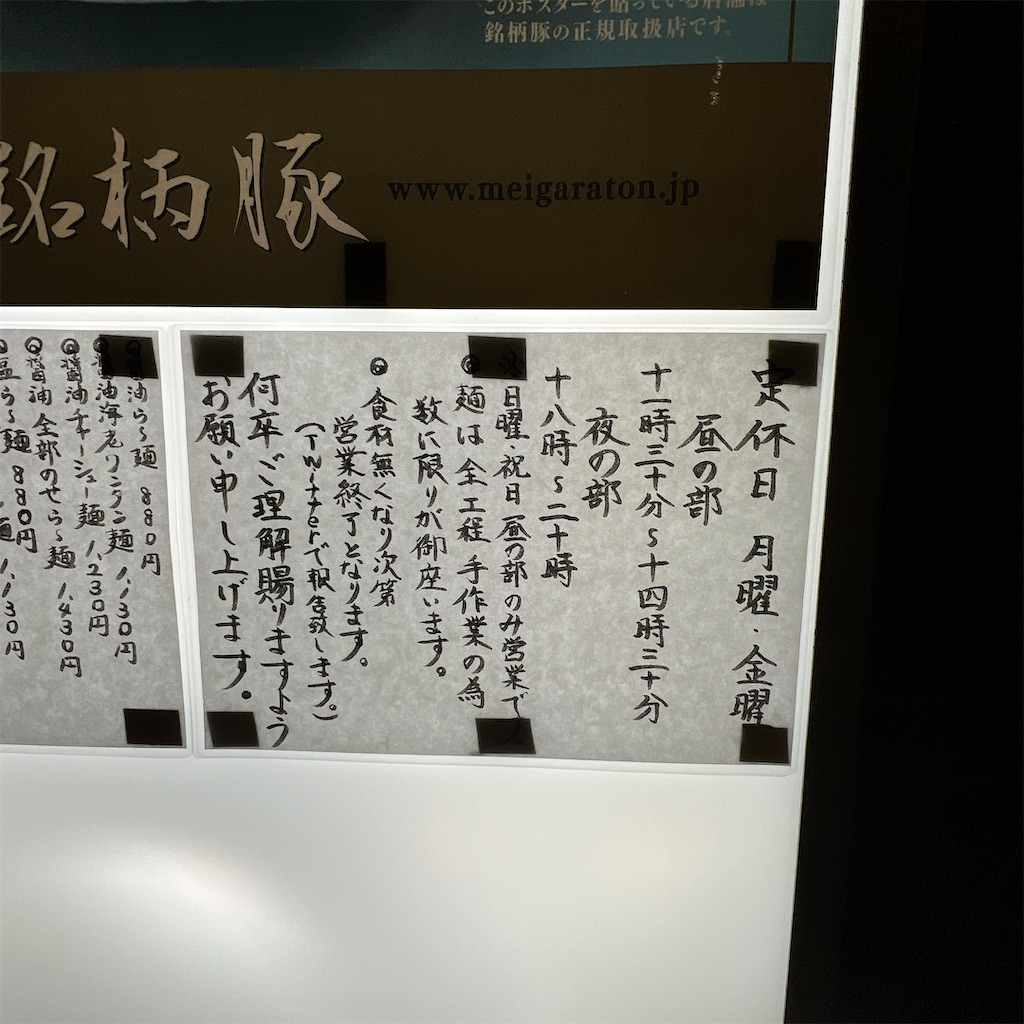 このポスターを貼っている店舗は
銘柄豚の正規取扱店です。
銘柄豚
www.meigaraton.jp
定休日 月曜・金曜
昼の部
十一時三十分~十四時三十分
夜の部
十八時~二十時
日曜・祝日 昼の部のみ営業で
麺は全工程手作業の為
数に限りが御座います。
◎食材無くなり次第
営業終了となります。
(Twitterで報告致します。)
何卒ご理解賜りますよう
お願い申し上げます。
油ら~麺 880円
醤油海老ワンタン麺 1,130円
◎醤油チャーシュー麺 1,230円
◎醤油全部のせら~麺 1,430円
塩ら~麺 880円
麺 1,130円